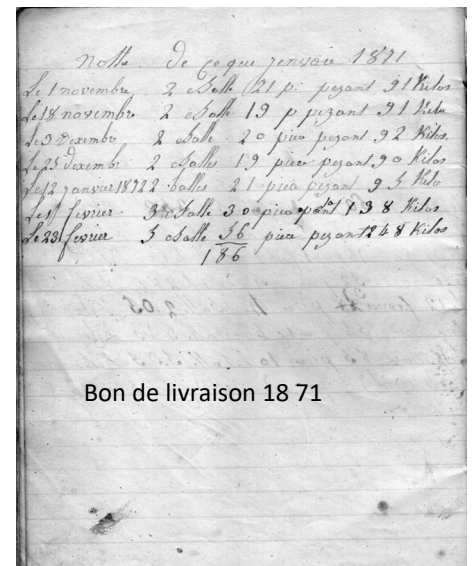 Notte De ce que jenvoie 1871
Le 1 novembre 2 Balle 21 pi pezant 91 Kilos
Le 18 novembre 2 Balle 19 p pezant 91 Kilo
Le 3 Dexembre 2 Balle 20 piea pezant 92 Kilos
Le 25 dexembr 2 Balles 19 pieea pezant 90 Kilos
Le 12 janvier 1872 2 balles 21 piea pezant 93 Kilo
Le 1 fevrier 3 Balle 30 piea 138 Kilos
Le 23 fevrier 3 Balle 36 piea pezant 148 Kilos
186
Bon de livraison 18 71